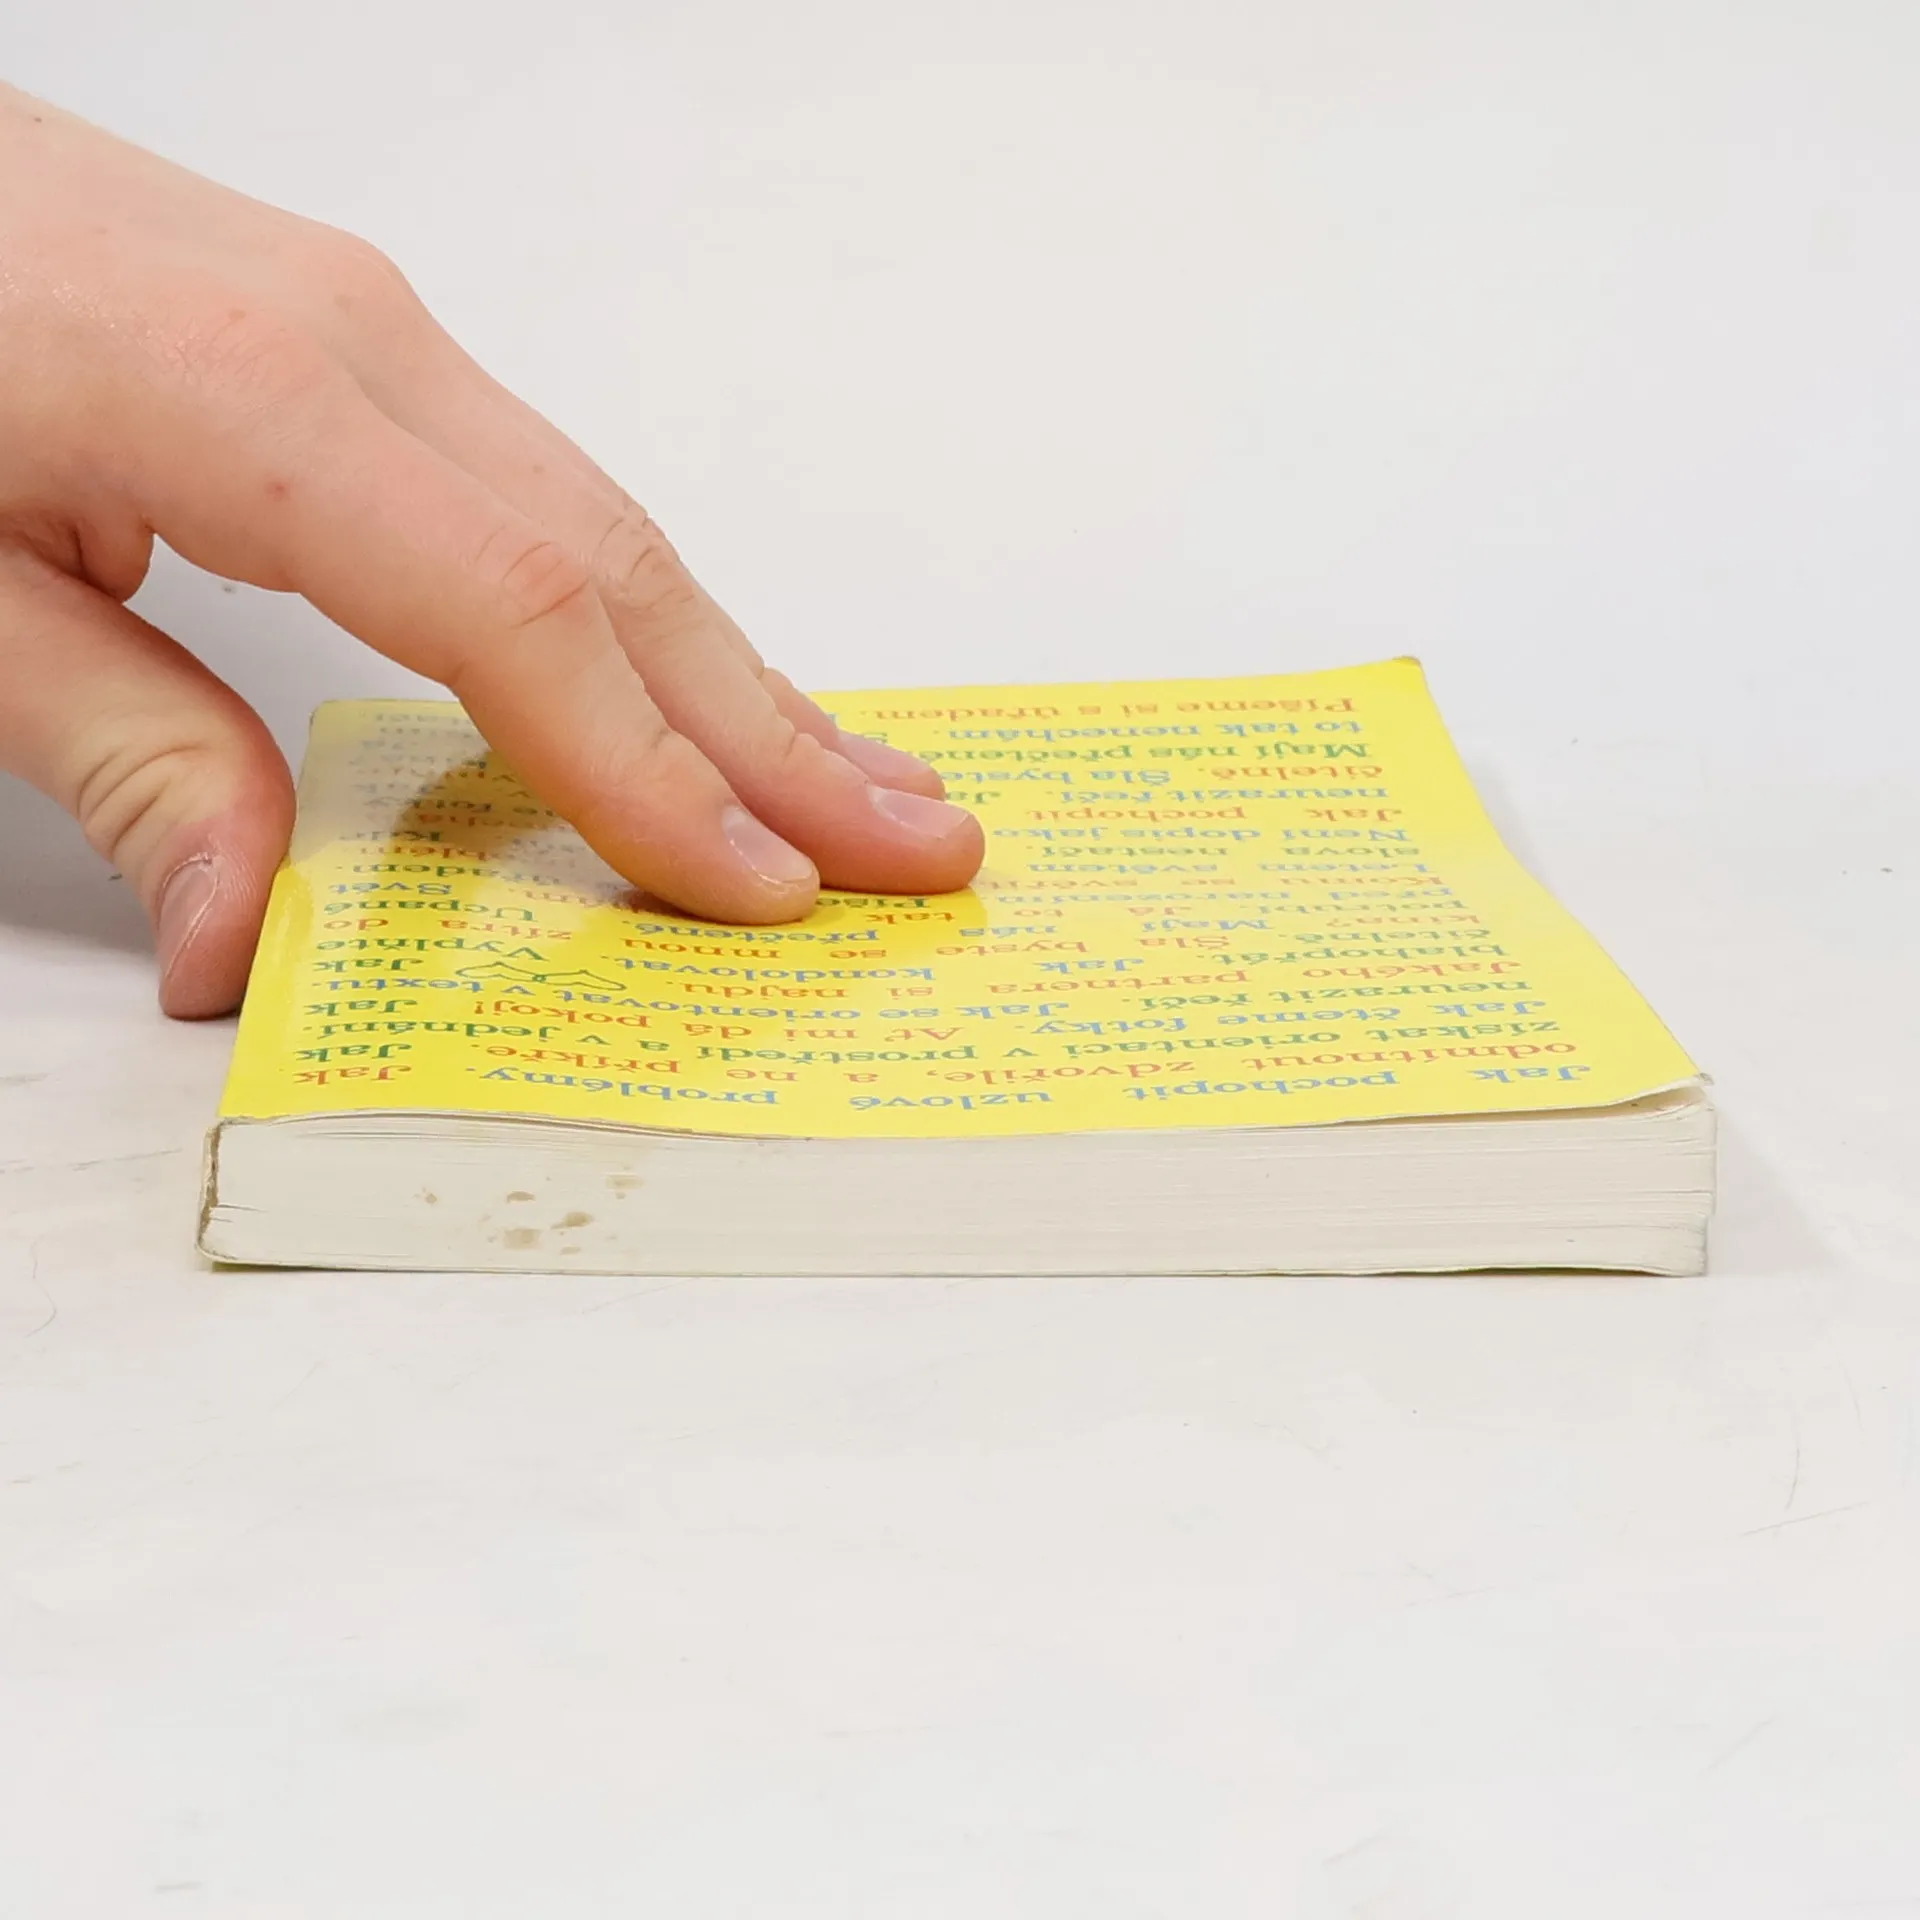 Jak pochopit uzlové problémy. Jak
odmítnout zdvořile, a ne příkře. Jak
získat orientaci v prostředí a v jednání.
Jak čteme fotky. Ať mi dá pokoj! Jak
neurazit řečí. Jak se orientovat v textu.
Jakého partnera si najdu. Jak
blahopřát. Jak kondolovat. Vyplňte
čitelně. Šla byste se mnou zítra do
kina? Mají nás přečtené. Ucpané
potrubí. Já to tak Svět
před narozením. Píšeme
Komu se svěřit.
Letem světem
slova nestačí.
Není dopis jako
Jak pochopit
neurazit řečí.
čitelně. Šla byste
Mají nás přečtené.
to tak nenechám.
Píšeme si s úřadem.